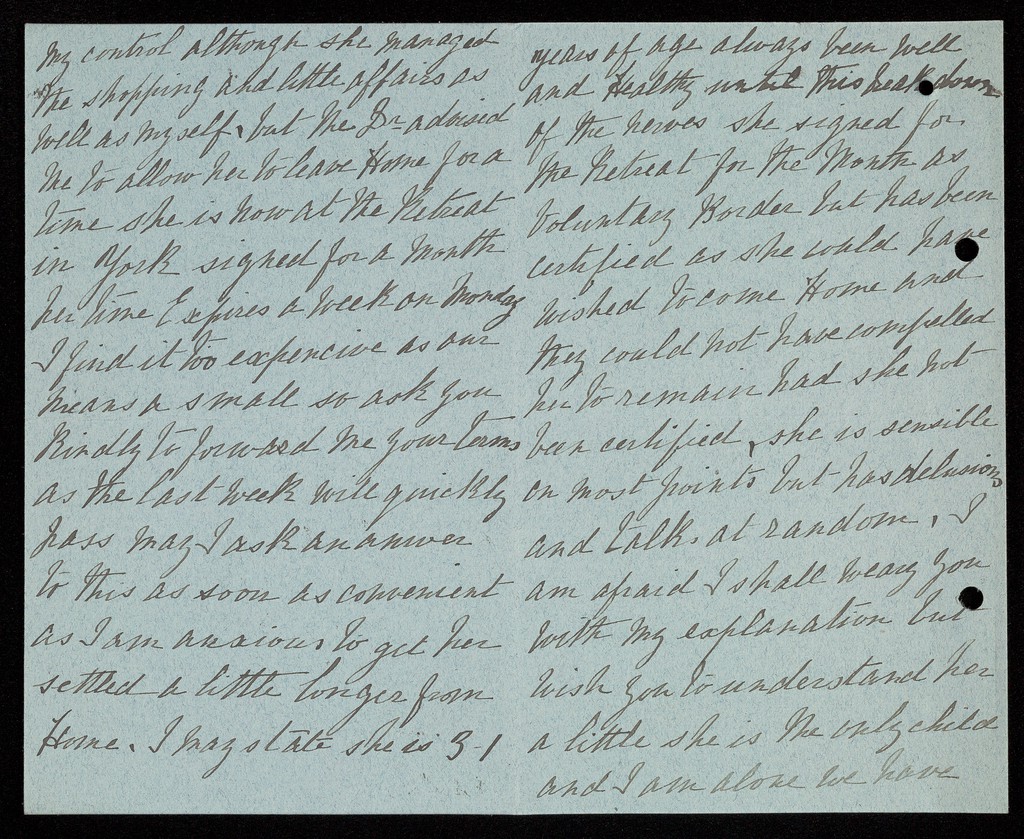 my control although she managed
the shopping and little affairs as
well as myself, but the Dr advised
me to allow her to leave Home for a
time she is now at the Retreat
in York signed for a month
her time Expires a week on Monday
I find it too expencive as our
means a small so ask you
Kindly to forward me your terms
as the last week will quickly
pass may I ask an answer
to this as soon as convenient
as I am anxious to get her
settled a little longer from
Home. I may state she is 31
years of age always been well
and Healthy until this beakdown
of the nerves she signed for
the Retreat for the Month as
Voluntary Border but has been
certified as she could have
wished to come Home and
they could not have compelled
her to remain had she not
been certified, she is sensible
on most points but has delusions
and talks at random, I
am afraid I shall weary you
with my explanation but
wish you to understand her
a little she is the only child
and I am alone we have